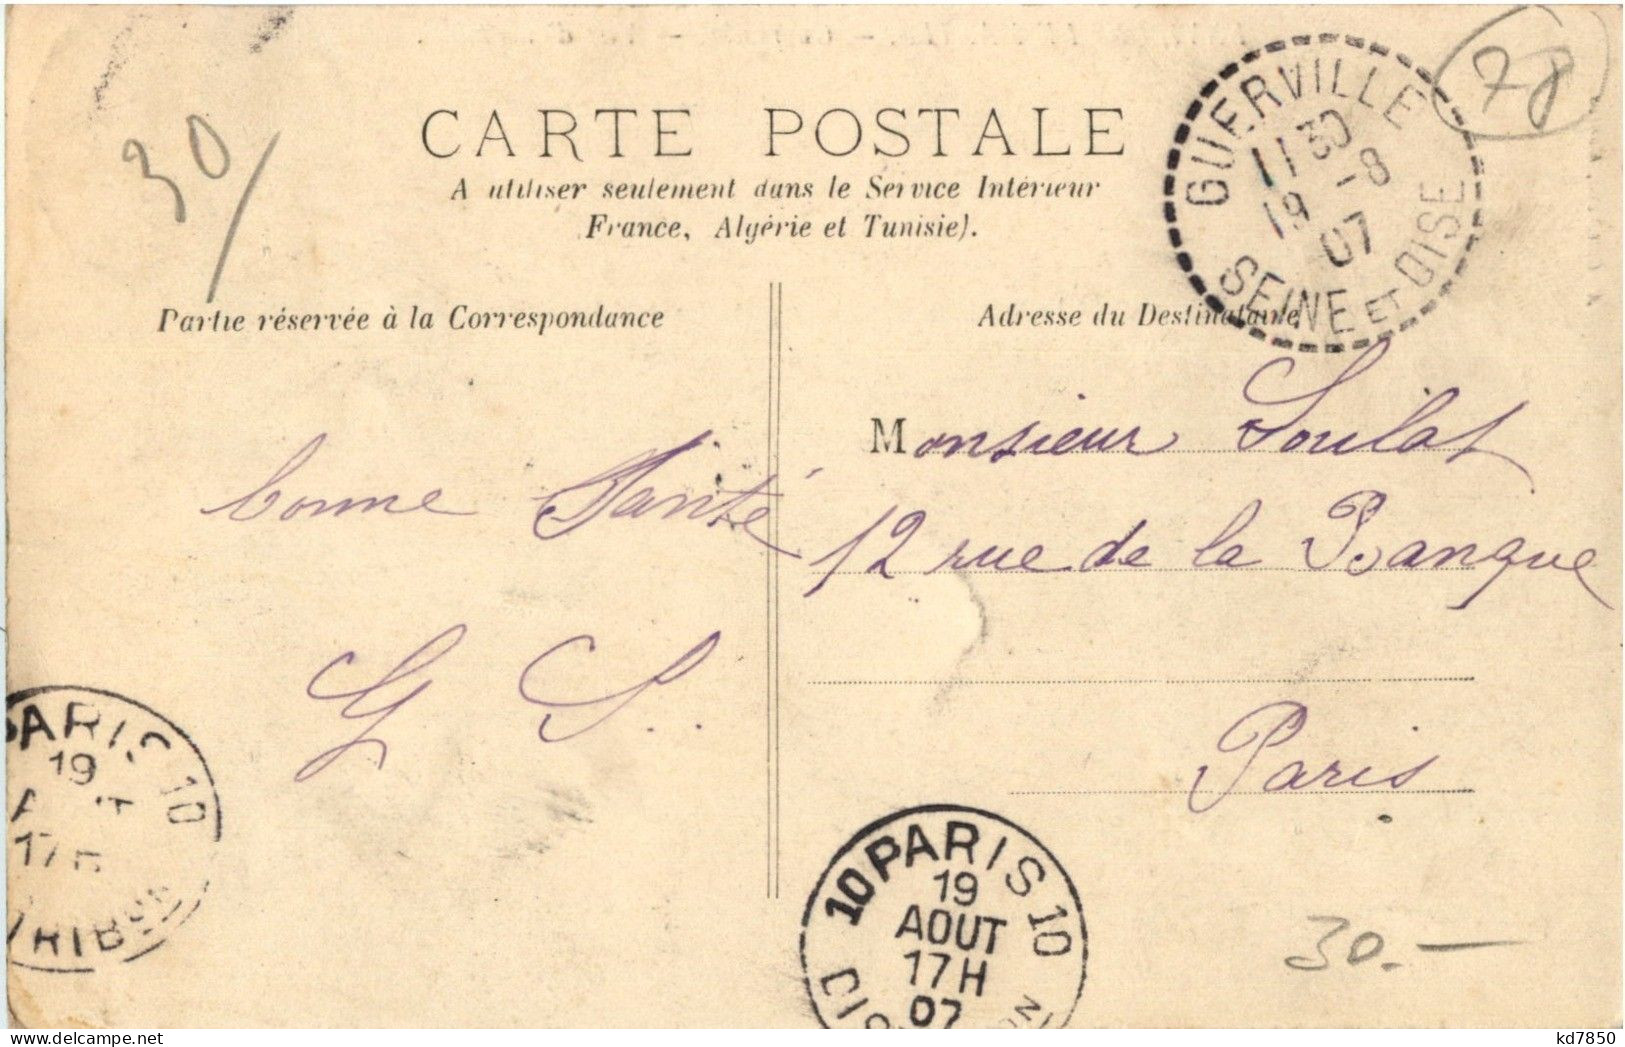 30/
78
CARTE POSTALE
A utiliser seulement dans le Service Intérieur
France, Algérie et Tunisie).
GUERVILLE
11 30
8
19 07
SEINE ET OISE
Partie réservée à la Correspondance
Adresse du Destinataire
bonne Santé
G S..
Monsieur Soulat
12 rue de la Banque
Paris
PARIS 10
19
A
17 H
TRIB
10 PARIS 10
19
AOUT
17H
07
DIS
30.-
kd7850